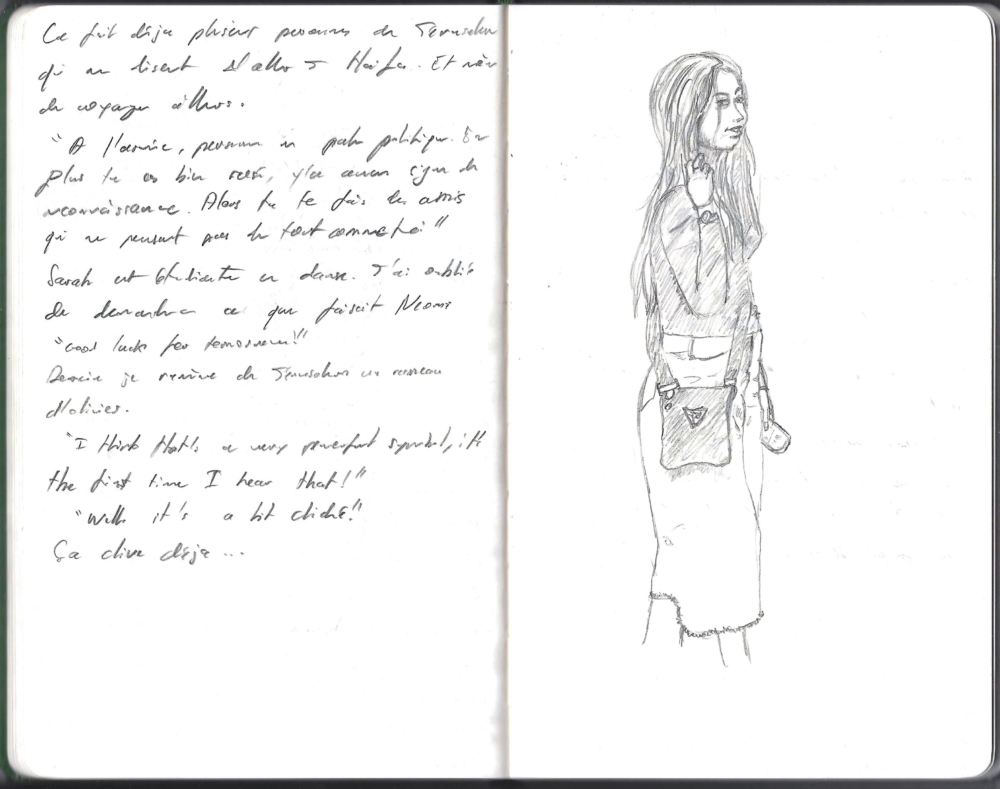 Ça fait déjà plusieurs personnes de Jérusalem
qui me disent d'aller à Haïfa. Et même
de voyager ailleurs.
"A l'armée, personne ne parle politique. En
plus tu es bien
reconnaissance. Alors tu te fais des amis
qui ne pensent pas du tout comme toi"
Sarah est étudiante en danse. J'ai oublié
de demander ce que faisait Neomi
"Good luck for tomorrow!"
Demain je ramène de Jérusalem un rameau
d'olivier.
"I think that's a very powerful symbol, it's
the first time I hear that!"
"Well it's a bit cliché!"
Ça clive déjà ...